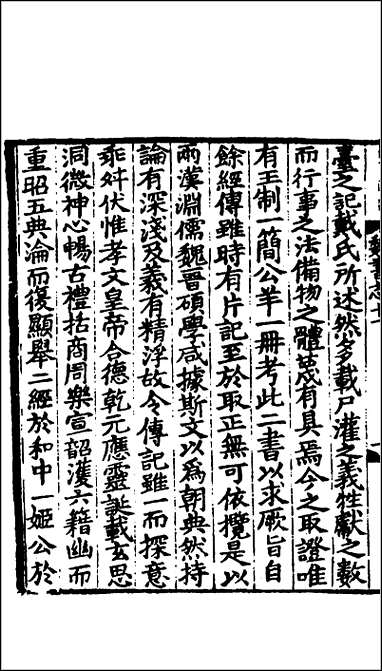 臺之記戴氏所述然多載尸灌之義牲獻之數
而行事之法備物之體蔑有具焉今之取證唯
有王制一簡公羊一冊考此二書以求厥旨自
餘經傳雖時有片記至於取正無可依攬是以
兩漢淵儒魏晉碩學咸據斯文以爲朝典然持
論有深淺及義有精浮故令傳記雖一而探意
乖舛伏惟孝文皇帝合德乾元應靈誕載玄思
洞微神心暢古禮括商周樂宣韶濩六籍幽而
重昭五典淪而復顯舉二經於和中一姬公於